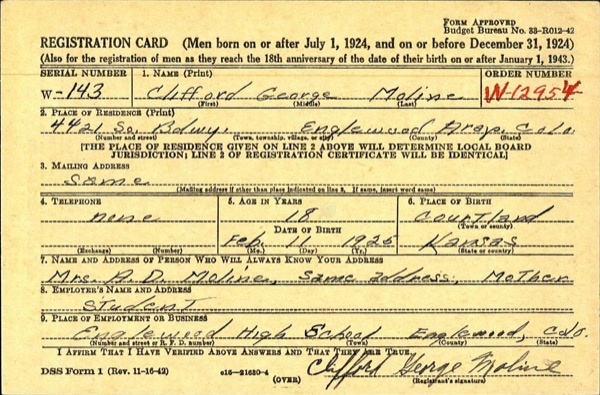 FORM APPROVED
Budget Bureau No. 33-R012-42
REGISTRATION CARD (Men born on or after July 1, 1924, and on or before December 31, 1924)
(Also for the registration of men as they reach the 18th anniversary of the date of their birth on or after January 1, 1943.)
SERIAL NUMBER 1. NAME (Print) ORDER NUMBER
W-143 Clifford George Moline W-12954
(First) (Middle) (Last)
2. PLACE OF RESIDENCE (Print)
4421 So. Bdwy. Englewood Arap. Colo.
(Number and street) (Town, township, village, or city) (County) (State)
[THE PLACE OF RESIDENCE GIVEN ON LINE 2 ABOVE WILL DETERMINE LOCAL BOARD
JURISDICTION; LINE 2 OF REGISTRATION CERTIFICATE WILL BE IDENTICAL]
3. MAILING ADDRESS
Same
(Mailing address if other than place indicated on line 2. If same, insert word same)
4. TELEPHONE 5. AGE IN YEARS 6. PLACE OF BIRTH
none 18 Courtland
DATE OF BIRTH (Town or county)
Feb. 11 1925 Kansas
(Exchange) (Number) (Mo.) (Day) (Yr.) (State or country)
7. NAME AND ADDRESS OF PERSON WHO WILL ALWAYS KNOW YOUR ADDRESS
Mrs. A. D. Moline, Same address, Mother
8. EMPLOYER'S NAME AND ADDRESS
Student
9. PLACE OF EMPLOYMENT OR BUSINESS
Englewood High School Englewood, Colo.
(Number and street or R. F. D. number) (Town) (County) (State)
I AFFIRM THAT I HAVE VERIFIED ABOVE ANSWERS AND THAT THEY ARE TRUE.
DSS Form 1 (Rev. 11-16-42) c16-21630-4 Clifford George Moline
(OVER) (Registrant's signature)